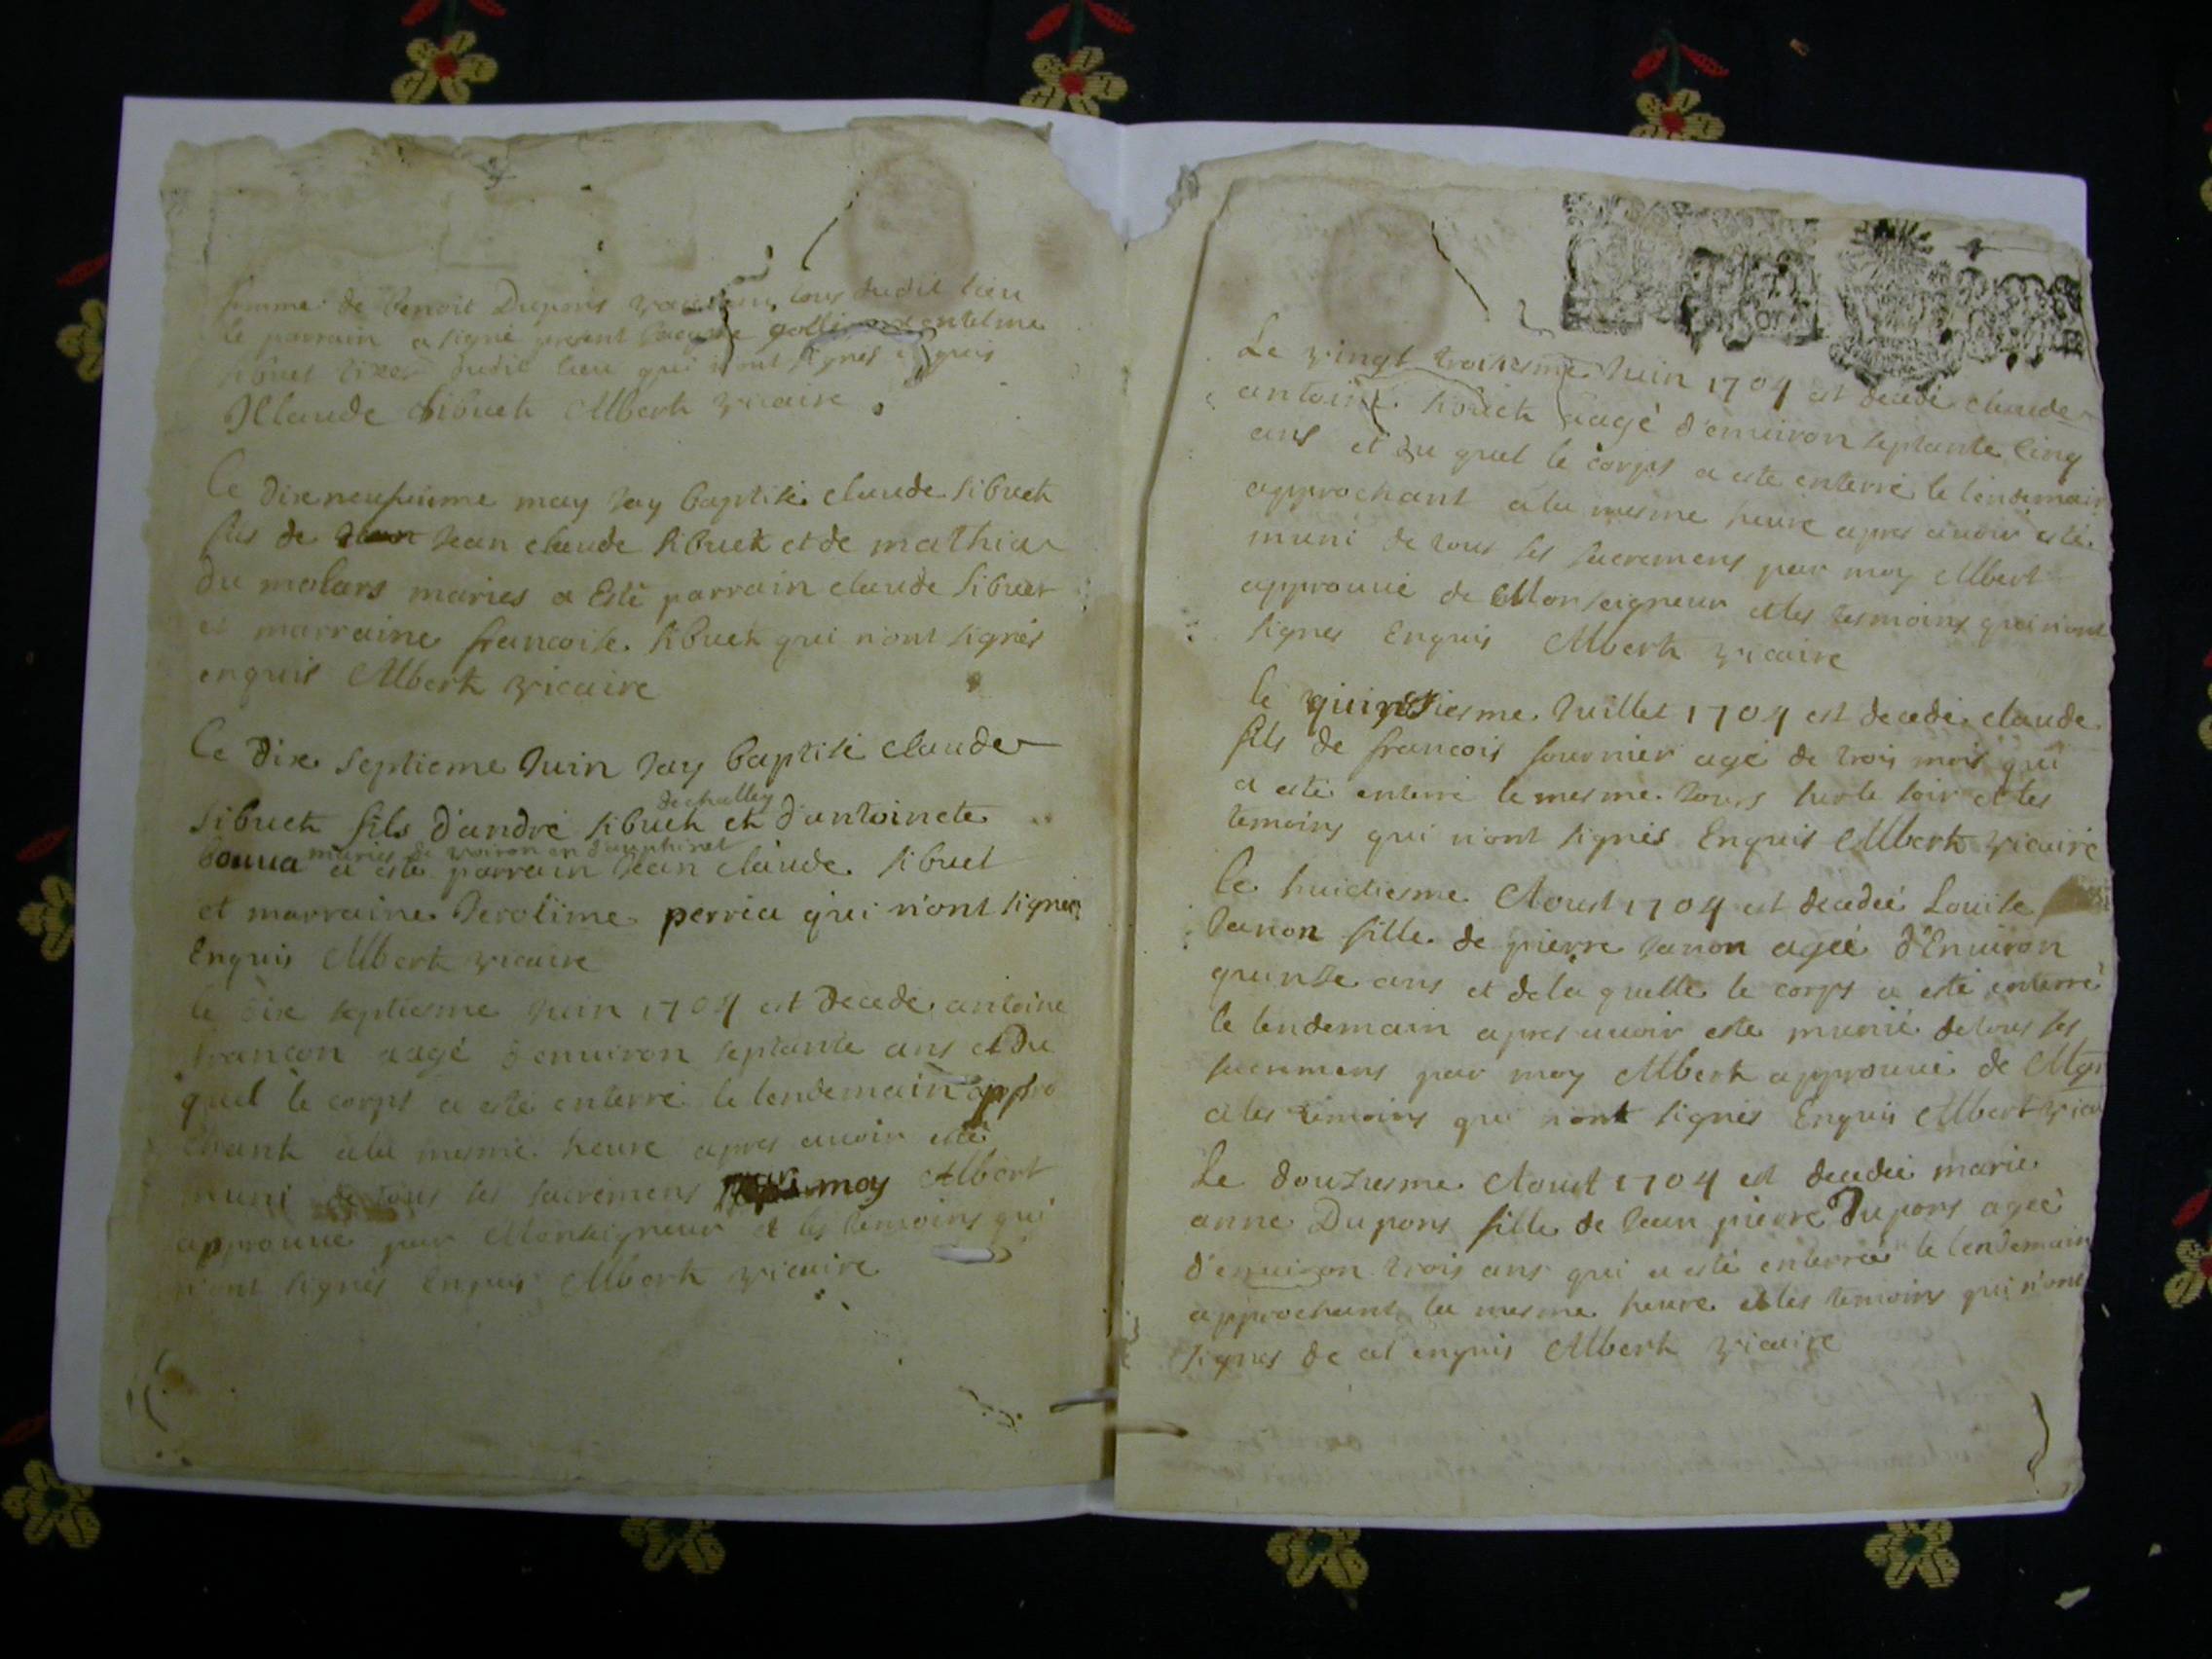 femme de benoit Dupons tous dudit lieu
le parrain a signé present
sibuet dudit lieu qui n'ont signés enquis
JClaude Sibuet Albert vicaire
le dixneufieme may jay baptisé claude sibuet
fils de jean claude sibuet et de mathia
du molars mariés a Esté parrain claude sibuet
et marraine francoise sibuet qui n'ont signés
enquis Albert vicaire
le dix septieme juin jay baptisé claude
dechalley
sibuet fils d'andré sibuet et d'antoinete
mariés de voiron en dauphiné
bouua a esté parrain jean claude sibuet
et marraine Jerolime perria qui n'ont signés
Enquis Albert vicaire
le dix septiesme juin 1704 est decede antoine
aagé d'enuiron septante ans et du
quel le corps a esté enterré le lendemain appro
chant ala mesme heure apres auoir esté
muni de tous ses sacremens par moy Albert
approuué par Monseigneur et les temoins qui
n'ont signés enquis Albert vicaire
Le vingt troisiesme Juin 1704 est decedé claude
antoine sibuet aagé d'enuiron septante cinq
ans et du quel le corps a esté enterré le lendemain
approchant ala mesme heure apres auoir esté
muni de tous ses sacremens par moy Albert
approuué de Monseigneur et les tesmoins qui n'ont
signes Enquis Albert vicaire
le quinsiesme Juillet 1704 est decedé claude
fils de francois fournier agé de trois mois qui
a esté enterré le mesme jours sur le soir et les
temoins qui n'ont signés Enquis Albert vicaire
le huictiesme Aoust 1704 est decedeé Louise
Janon fille de pierre Janon ageé d'Enuiron
quinse ans et dela quelle le corps a esté enterré
le lendemain apres auoir este munie de tous ses
sacremens par moy Albert approuué de Mgr
et les temoins qui n'ont signés Enquis Albert vica
Le douziesme Aoust 1704 est decedeé marie
anne Dupons fille de Jean pierre Dupons ageé
d'enuiron trois ans qui a esté enterrée le lendemain
approchant la mesme heure et les temoins qui n'ont
signes de ce enquis Albert vicaire